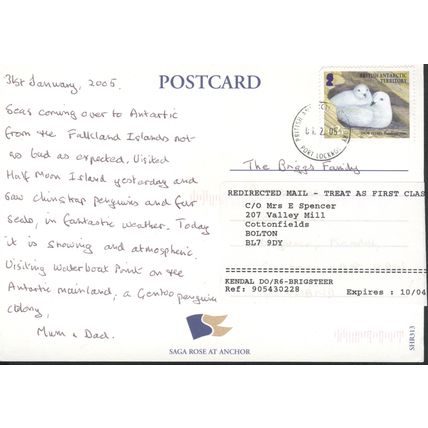 31st January, 2005.
Seas coming over to Antartic
from the Falkland Islands not
as bad as expected, Visited
Half Moon Island yesterday and
saw chinstrap penguins and fur
seals, in fantastic weather. Today
it is snowing and atmospheric.
Visiting Waterboat Point on the
Antartic mainland, a Gentoo penguin
colony,
Mum & Dad.
POSTCARD
BRITISH ANTARCTIC
TERRITORY
PORT LOCKROY
The Briggs Family
REDIRECTED MAIL - TREAT AS FIRST CLAS
C/O Mrs E Spencer
207 Valley Mill
Cottonfields
BOLTON
BL7 9DY
KENDAL DO/R6-BRIGSTER
Ref: 905430228 Expires : 10/04
SAGA ROSE AT ANCHOR
SHR313